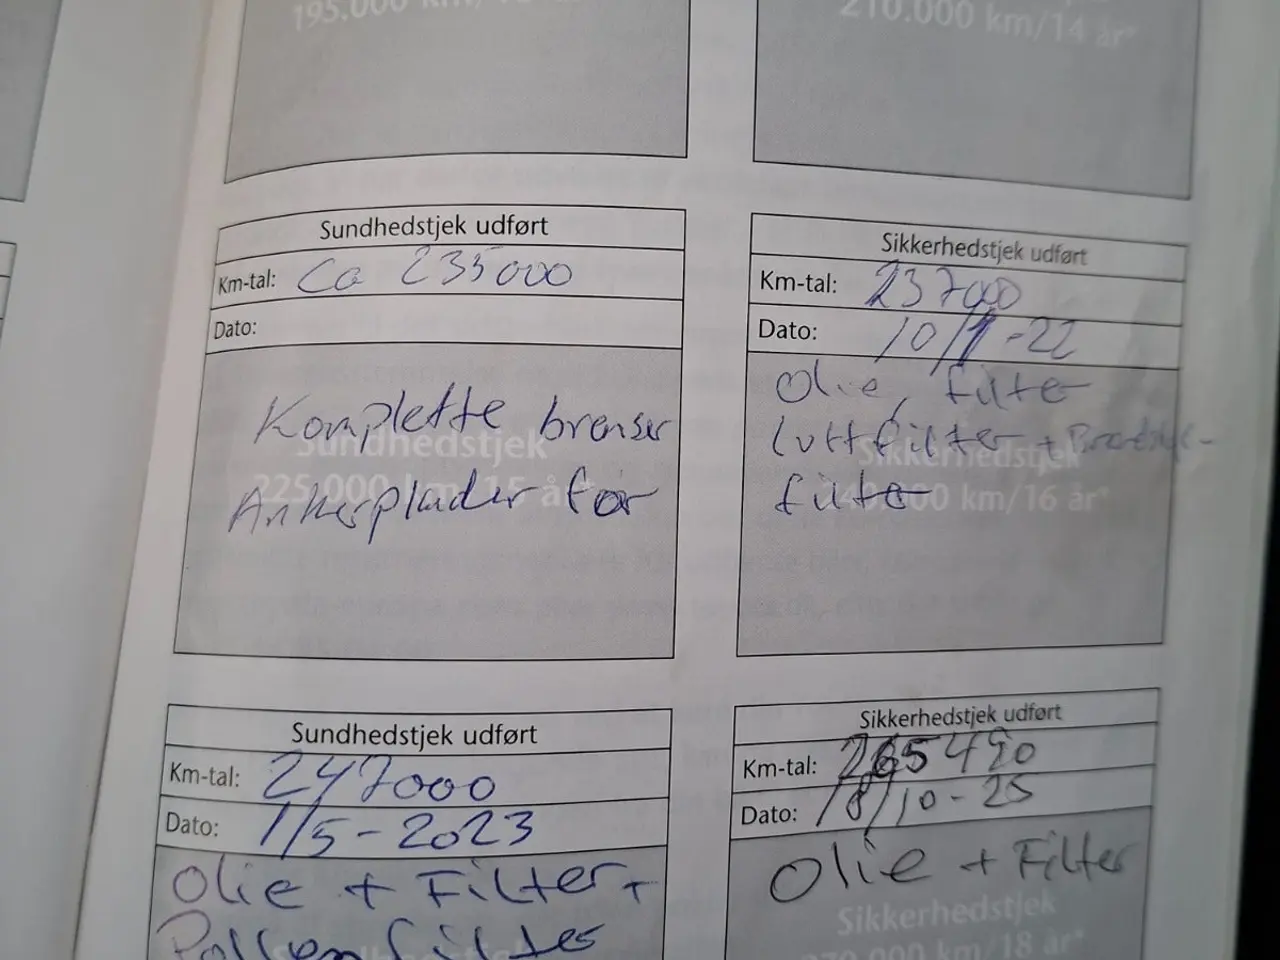 195.000 km/
210.000 km/14 år*
Sundhedstjek udført
Km-tal: Ca 235000
Dato:
Komplette bremser
Ankerplader for
Sundhedstjek
225.000 km/15 år*
Sikkerhedstjek udført
Km-tal: 237000
Dato: 10/1-22
Olie, filter
luftfilter +
filter
Sikkerhedstjek
240.000 km/16 år*
Sundhedstjek udført
Km-tal: 247000
Dato: 1/5-2023
Olie + Filter +
Pollenfilter
Sikkerhedstjek udført
Km-tal: 265490
Dato: 18/10-25
Olie + Filter
Sikkerhedstjek
270.000 km/18 år*